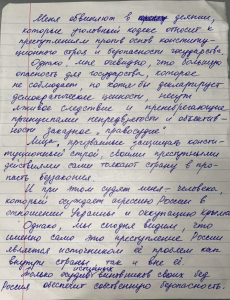 Меня обвиняют в деянии,
которое уголовный кодекс относит к
преступлениям против основ конститу-
ционного строя и безопасности государства.
Однако, мне очевидно, что большую
опасность для государства, которое
не соблюдает, но хотя бы декларирует
демократические ценности, несут
лживое следствие и пренебрегающее
принципами непредвзятости и объектив-
ности заказное "правосудие"
Лица, призванные защищать консти-
туционный строй, своими преступными
действиями сами толкают страну в про-
пасть беззакония.
И при этом судят меня - человека,
который осуждает агрессию России в
отношении Украины и оккупацию Крыма
Однако, мы сегодня видим, что
именно само это преступление России
является источником её проблем как
внутри страны, так и вне её.
только осудив истинных виновников своих бед
Россия обеспечит собственную безопасность.